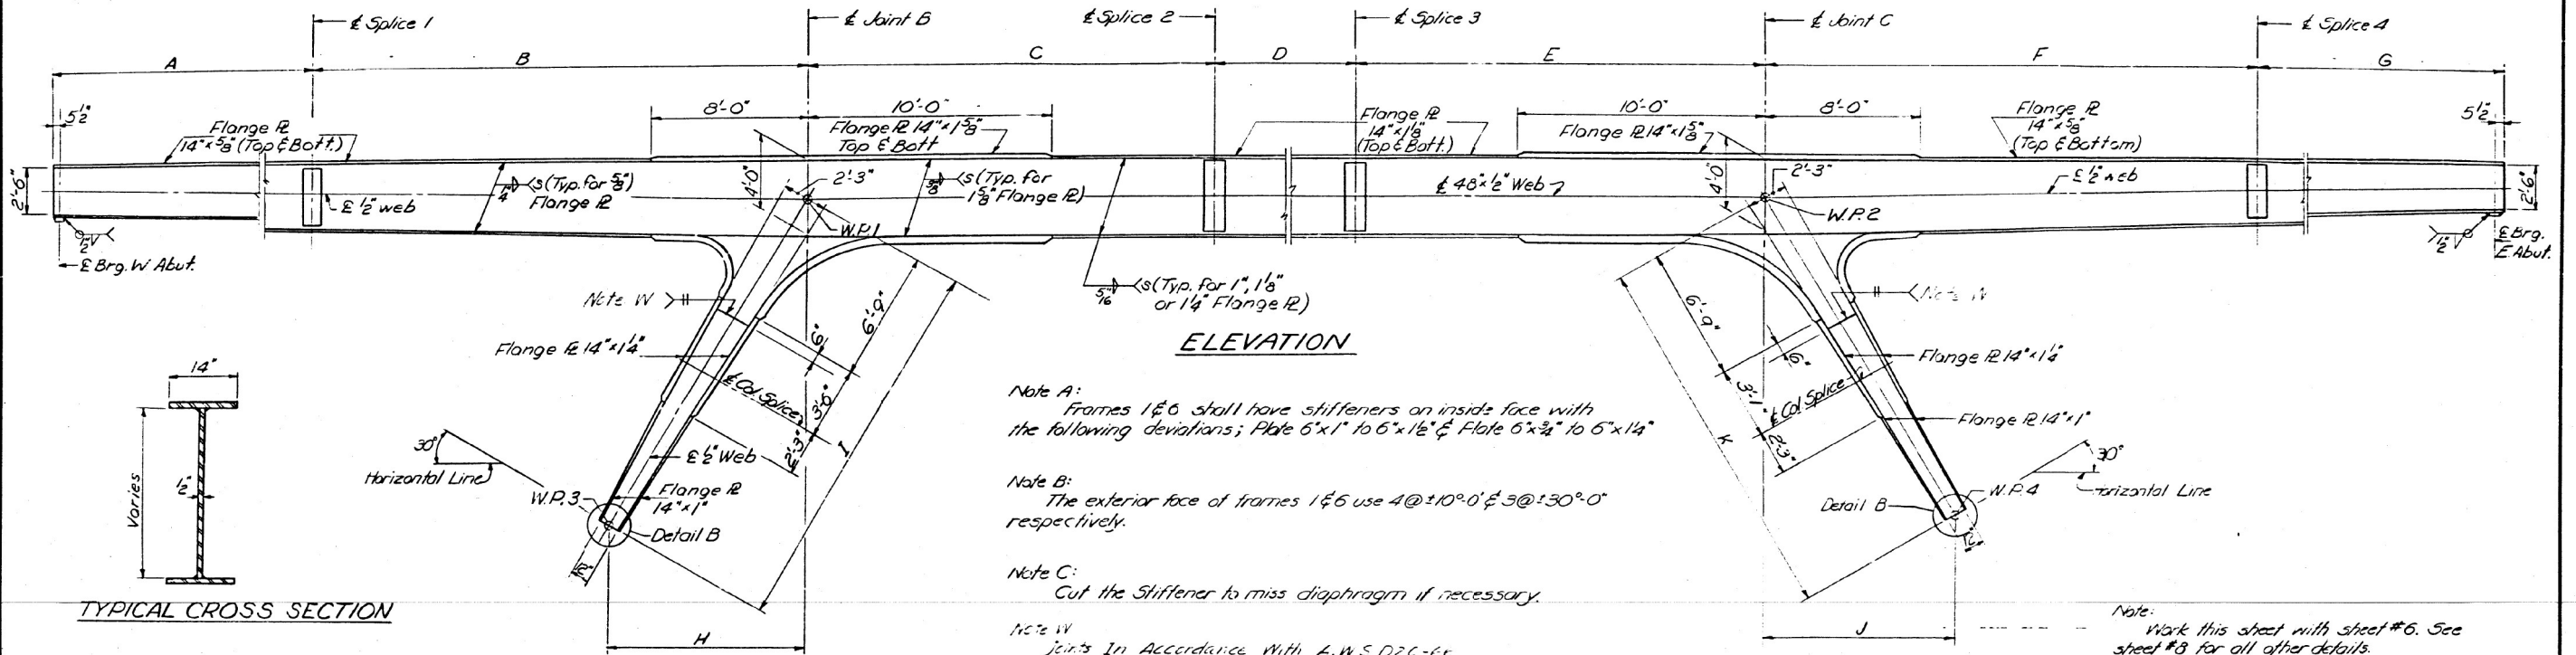 ℄ Splice 1
℄ Joint B
℄ Splice 2
℄ Splice 3
℄ Joint C
℄ Splice 4
A
B
C
D
E
F
G
5½"
8'-0"
10'-0"
10'-0"
8'-0"
5½"
Flange ℞
14"x⅝" (Top & Bott.)
Flange ℞ 14"x1⅝"
Top & Bott
Flange ℞
14"x1⅛"
(Top & Bott.)
Flange ℞ 14"x1⅝"
Flange ℞
14"x⅝"
(Top & Bottom)
2'-6"
℄ ½" web
¼ s (Typ. for ⅝")
Flange ℞
4'-0"
2'-3"
W.P.1
⅜ s (Typ. for
1⅝" Flange ℞)
℄ 48"x½" Web
4'-0"
2'-3"
W.P.2
℄ ½" web
2'-6"
½
℄ Brg. W Abut.
½
℄ Brg.
E Abut.
5/16 s (Typ. for 1", 1⅛"
or 1¼" Flange ℞)
ELEVATION
Note W
Note W
Flange ℞ 14"x1¼"
6"
6'-9"
℄ Col Splice
3'-6"
2'-3"
I
℄ ½" Web
Flange ℞
14"x1"
W.P.3
Detail B
30°
Horizontal Line
12"
H
6'-9"
6"
3'-1"
℄ Col Splice
2'-3"
K
Flange ℞ 14"x1¼"
Flange ℞ 14"x1"
30°
Horizontal Line
W.P.4
Detail B
12"
J
14"
Varies
½"
TYPICAL CROSS SECTION
Note A:
Frames 1 & 6 shall have stiffeners on inside face with
the following deviations; Plate 6"x1" to 6"x1½" & Plate 6"x¾" to 6"x1¼"
Note B:
The exterior face of frames 1 & 6 use 4@±10°-0' & 3@±30°-0"
respectively.
Note C:
Cut the Stiffener to miss diaphragm if necessary.
Note W
joints In Accordance With A.W.S.
Note:
Work this sheet with sheet #6. See
sheet #8 for all other details.